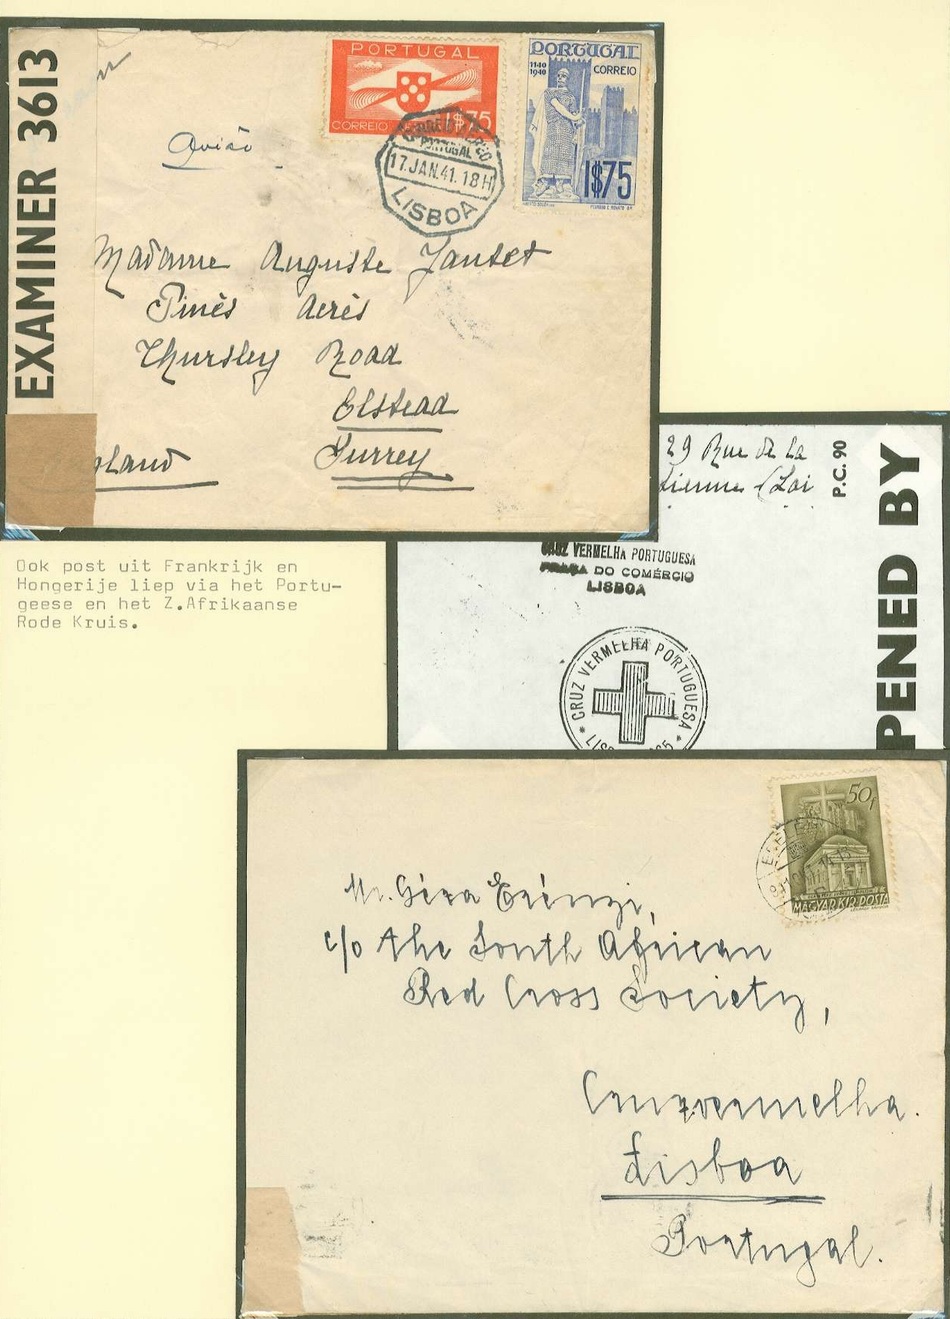 EXAMINER 3613
Avião
PORTUGAL
CORREIO AÉREO 1$75
PORTUGAL
1140
1940
CORREIO
1$75
CORREIO AEREO
PORTUGAL
17.JAN.41.18H
LISBOA
Madame Auguste
Pinès Aerès
Thursley Road
Elstead
Surrey
29 Rue de La
tienne (Loi
P.C. 90
PENED BY
Ook post uit Frankrijk en
Hongerije liep via het Portu-
geese en het Z.Afrikaanse
Rode Kruis.
CRUZ VERMELHA PORTUGUESA
PRAÇA DO COMÉRCIO
LISBOA
* CRUZ VERMELHA PORTUGUESA *
50f
MAGYAR KIR. POSTA
Mr. Géza
c/o the South African
Red Cross Society,
Cruzvermelha.
Lisboa
Portugal.